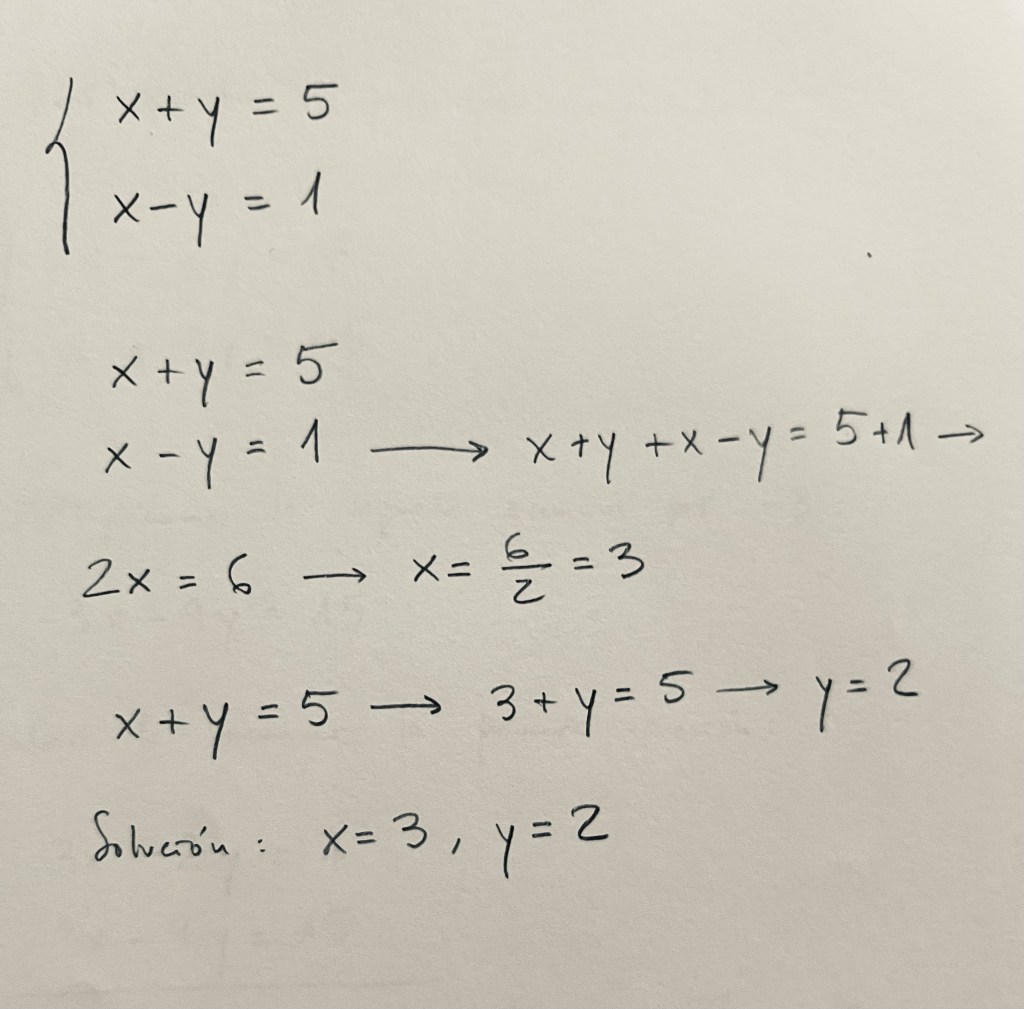 { x + y = 5
x - y = 1
x + y = 5
x - y = 1 → x + y + x - y = 5 + 1 →
2x = 6 → x = 6/2 = 3
x + y = 5 → 3 + y = 5 → y = 2
Solución : x = 3 , y = 2